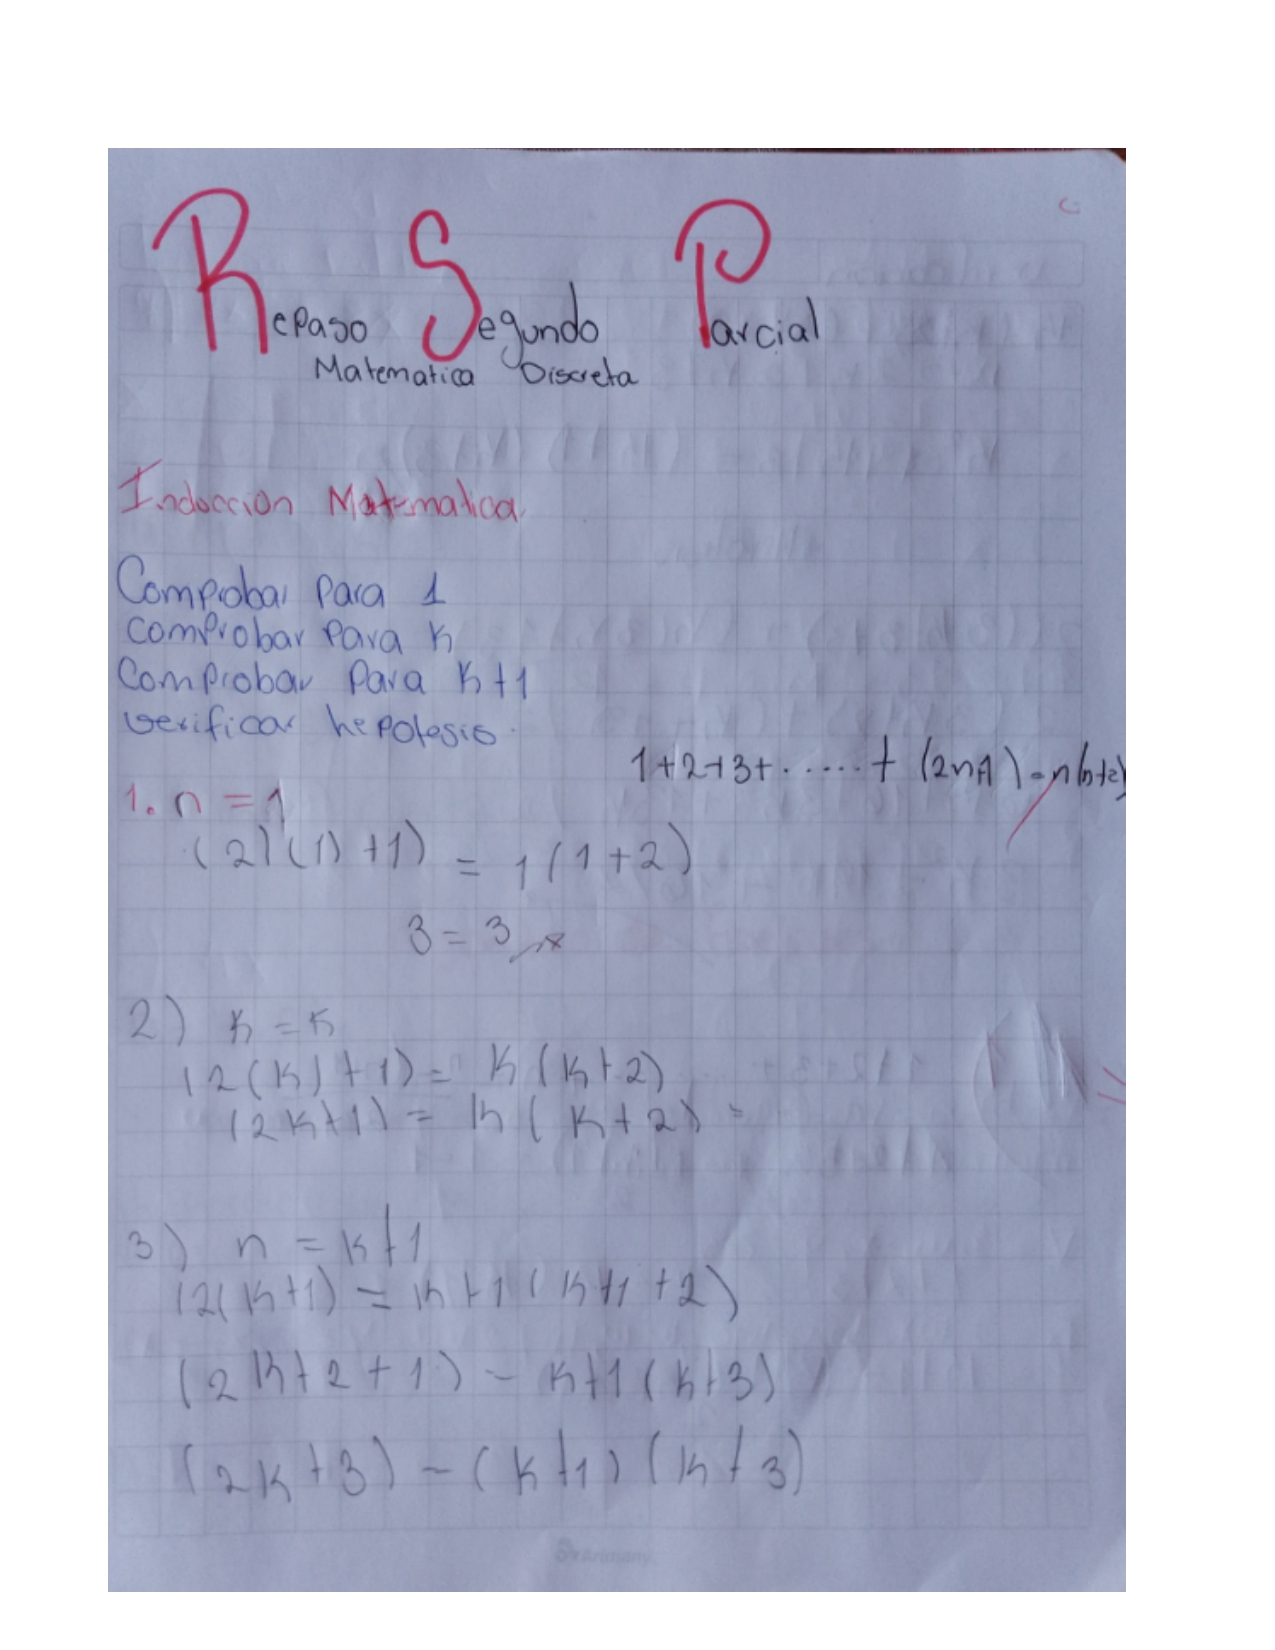 Repaso Segundo Parcial
Matematica Discreta
Induccion Matematica
Comprobar para 1
comprobar para K
Comprobar para K+1
verificar hepotesis.
1+2+3+.....+ (2n+1) = n(n+2)
1. n = 1
(2)(1)+1) = 1(1+2)
3 = 3
2) K = K
(2(K)+1) = K(K+2)
(2K+1) = K(K+2) =
3) n = K+1
(2(K+1) = K+1(K+1+2)
(2K+2+1) - K+1(K+3)
(2K+3) - (K+1)(K+3)
Arimany